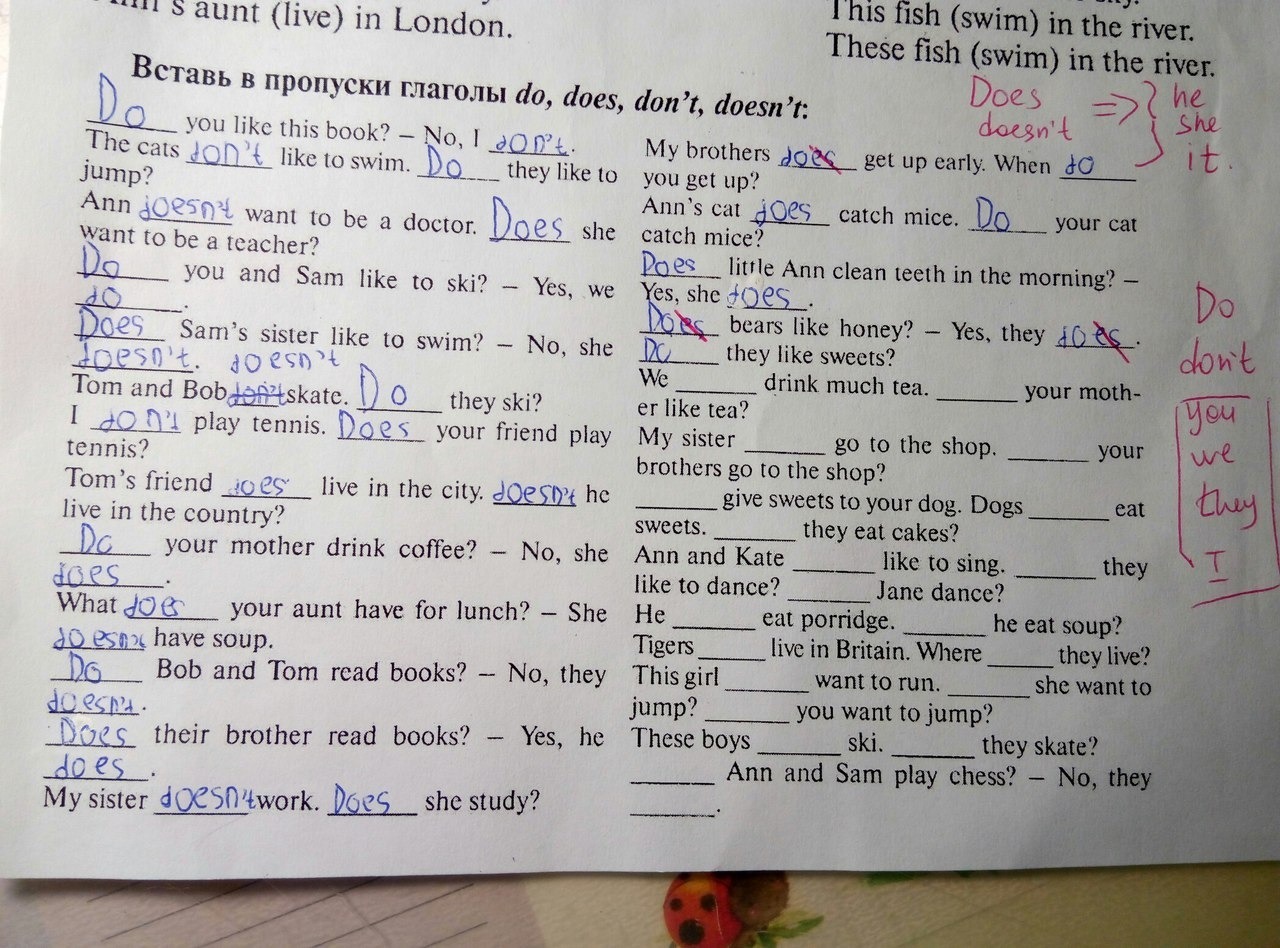 's aunt (live) in London.
This fish (swim) in the river.
These fish (swim) in the river.
Вставь в пропуски глаголы do, does, don't, doesn't:
Do you like this book? – No, I don't.
The cats don't like to swim. Do they like to
jump?
Ann doesn't want to be a doctor. Does she
want to be a teacher?
Do you and Sam like to ski? – Yes, we
do.
Does Sam's sister like to swim? – No, she
doesn't. doesn't
Tom and Bob don't skate. Do they ski?
I don't play tennis. Does your friend play
tennis?
Tom's friend does live in the city. doesn't he
live in the country?
Do your mother drink coffee? – No, she
does.
What does your aunt have for lunch? – She
doesn't have soup.
Do Bob and Tom read books? – No, they
doesn't.
Does their brother read books? – Yes, he
does.
My sister doesn't work. Does she study?
Does
doesn't => he
she
it.
My brothers does get up early. When do
you get up?
Ann's cat does catch mice. Do your cat
catch mice?
Does little Ann clean teeth in the morning? –
Yes, she does.
Does bears like honey? – Yes, they does.
Do they like sweets?
We ______ drink much tea. ______ your moth-
er like tea?
My sister ______ go to the shop. ______ your
brothers go to the shop?
______ give sweets to your dog. Dogs ______ eat
sweets. ______ they eat cakes?
Ann and Kate ______ like to sing. ______ they
like to dance? ______ Jane dance?
He ______ eat porridge. ______ he eat soup?
Tigers _____ live in Britain. Where _____ they live?
This girl ______ want to run. ______ she want to
jump? ______ you want to jump?
These boys ______ ski. ______ they skate?
______ Ann and Sam play chess? – No, they
______.
Do
don't
you
we
they
I